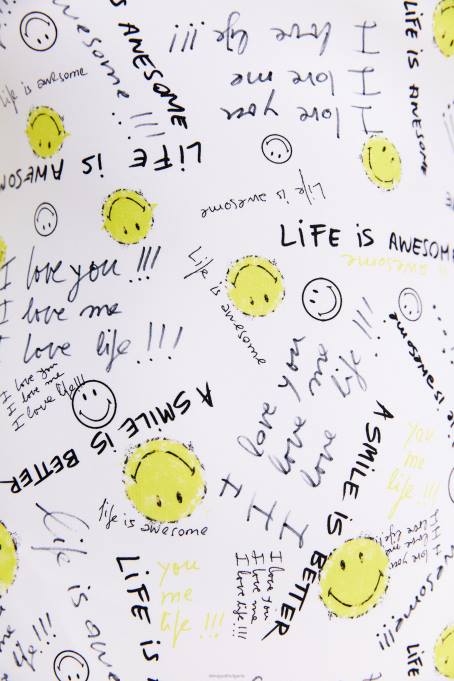 LIFE is
LIFE IS AWESOME
awesome
I love life !!!
I love me
I love you
life is awesome
LIFE is AWESOME
Life is awesome
LIFE is AWESOME
awesome
I love you !!!
I love me
I love life !!!
Life is awesome
I love you
I love me
I love life!!!
A SMILE IS BETTER
I love you
I love me
I love life !!!
you
me
life !!!
A SMILE IS BETTER
life is awesome
Life is
LIFE is
you
me
life !!!
I love you
I love me
I love life!!!
I love you
I love me
I love life!!!
awesome!!!
life !!!
LIFE